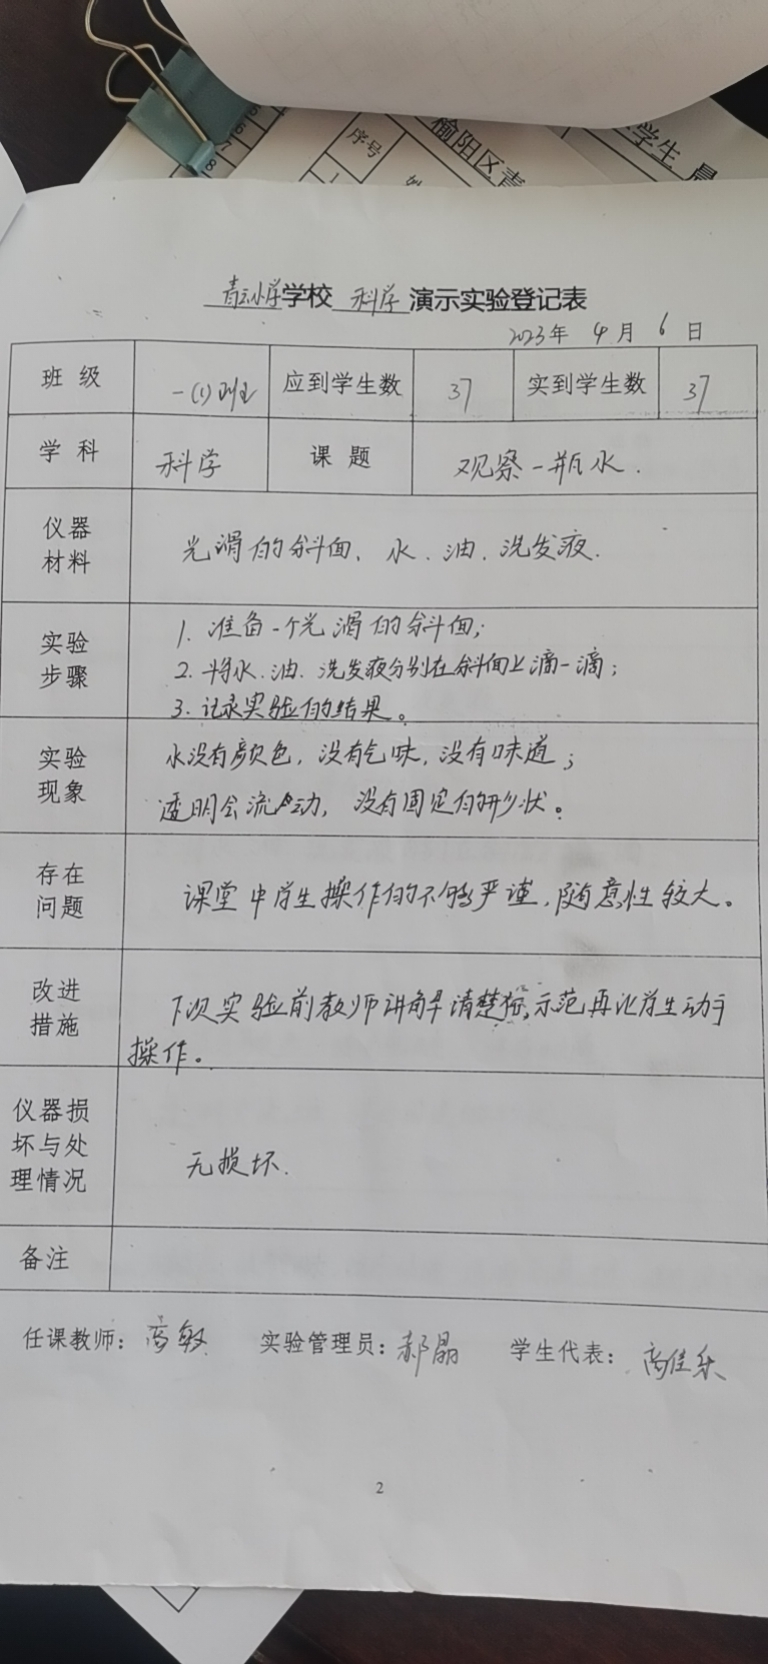 序号
榆阳区青
学生 晨
青云小学学校 科学 演示实验登记表
2023年 4月 6日
班 级 一(1)班 应到学生数 37 实到学生数 37
学 科 科学 课 题 观察一瓶水.
仪器
材料
光滑的斜面、水、油、洗发液.
实验
步骤
1. 准备一个光滑的斜面;
2. 将水、油、洗发液分别在斜面上滴一滴;
3. 记录实验的结果。
实验
现象
水没有颜色,没有气味,没有味道;
透明会流动,没有固定的形状。
存在
问题
课堂中学生操作的不够严谨,随意性较大。
改进
措施
下次实验前教师讲解清楚,示范再让学生动手
操作。
仪器损
坏与处
理情况
无损坏.
备注
任课教师: 高敏 实验管理员: 郝晶 学生代表: 高佳乐
2